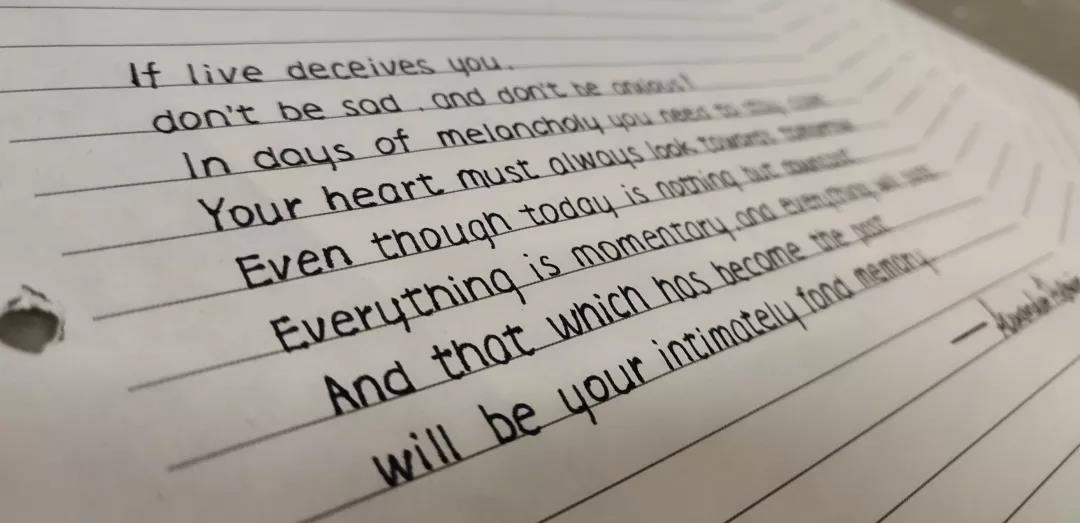 If live deceives you.
don't be sad, and don't be anxious!
In days of melancholy you need to stay calm
Your heart must always look towards tomorrow
Even though today is nothing but
Everything is momentary, and everything will pass
And that which has become the past
will be your intimately fond memory.
—